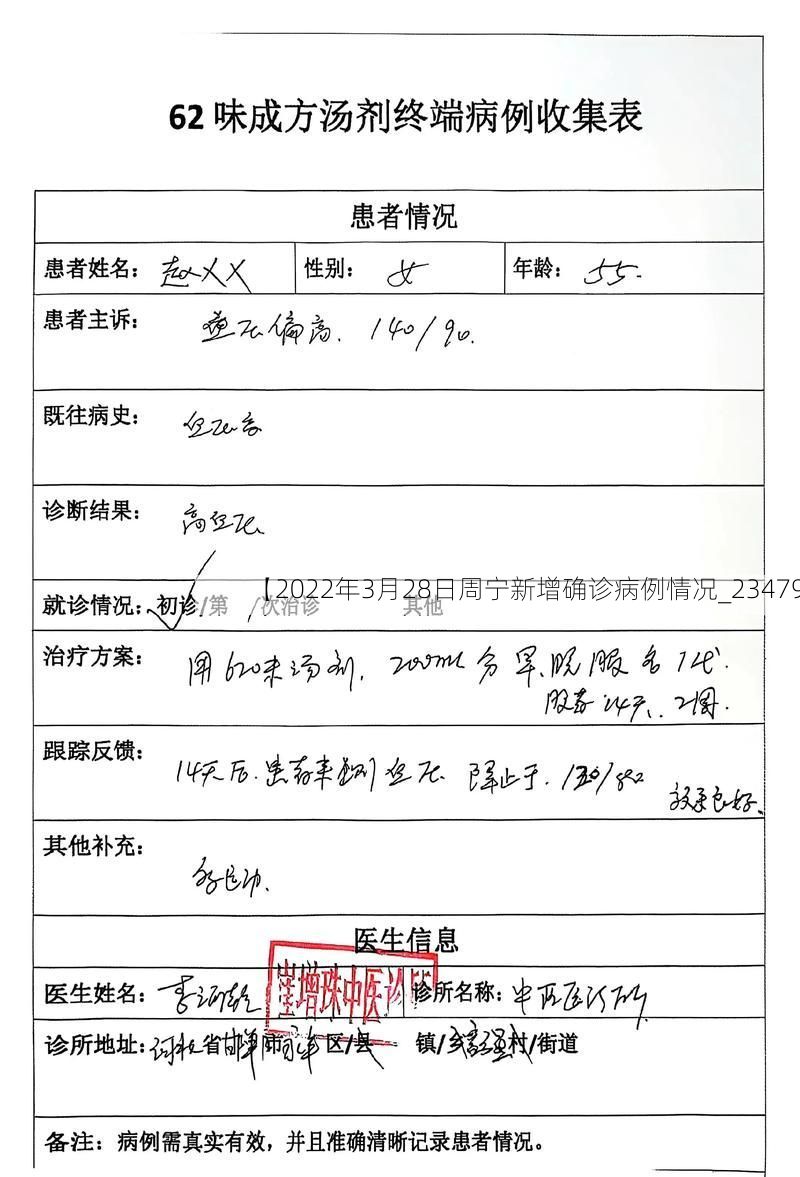 62味成方汤剂终端病例收集表
患者情况
患者姓名： 赵XX 性别： 女 年龄： 55.
患者主诉： 血压偏高. 140/90.
既往病史： 血压高
诊断结果： 高血压
【2022年3月28日周宁新增确诊病例情况_23479
就诊情况：初诊/第 /次治诊 其他
治疗方案： 用620味汤剂, 200ml 分早、晚服各1代.
服药14天、2周.
跟踪反馈： 14天后. 患者来 血压 降 于. 130/
效果良好.
其他补充：
医生信息
崔增珠中医诊所
医生姓名： 李 诊所名称： 中医 诊所
诊所地址： 河北省邯郸市 区/县 镇/乡 村/街道
备注：病例需真实有效，并且准确清晰记录患者情况。